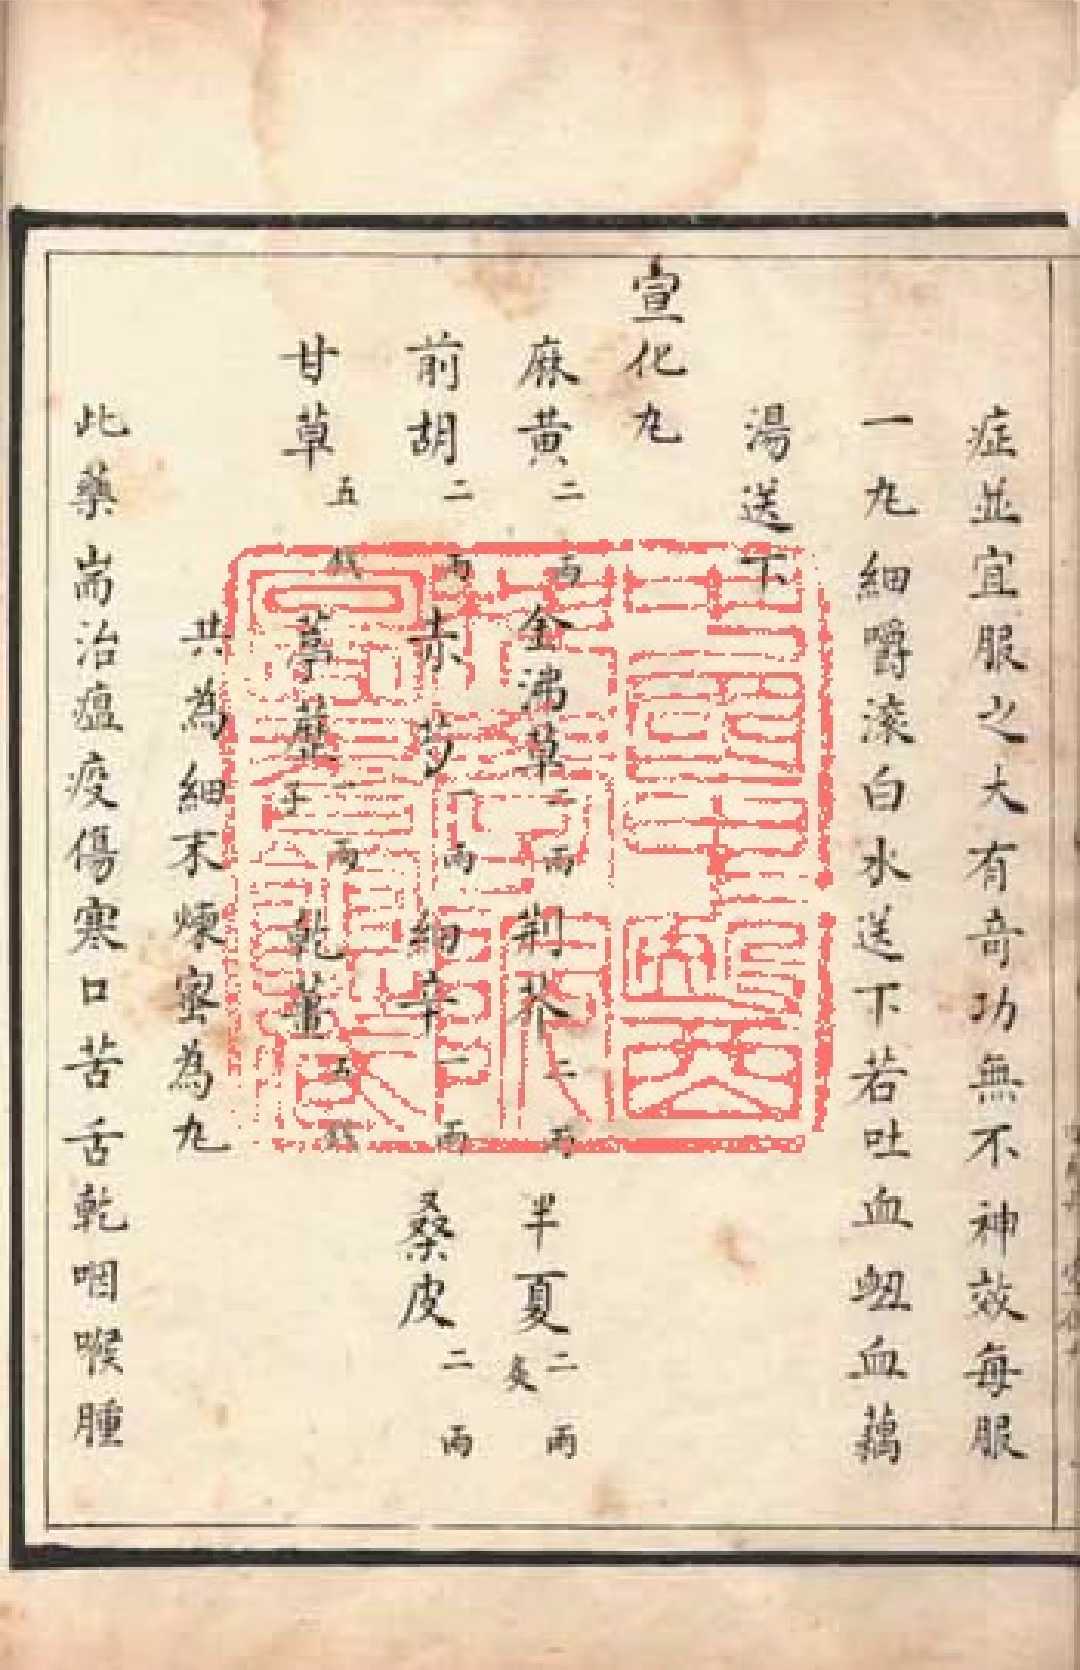 症並宜服之大有奇功無不神效每服
一丸細嚼滚白水送下若吐血衂血藕
湯送下
宣化丸
麻黄二兩 金沸草二兩 荆芥二兩 半夏炙二兩
前胡二兩 赤芍一兩 細辛一兩 桑皮二兩
甘草五錢 葶藶子一兩 乾薑五錢
共為細末煉蜜為丸
此藥耑治瘟疫傷寒口苦舌乾咽喉腫